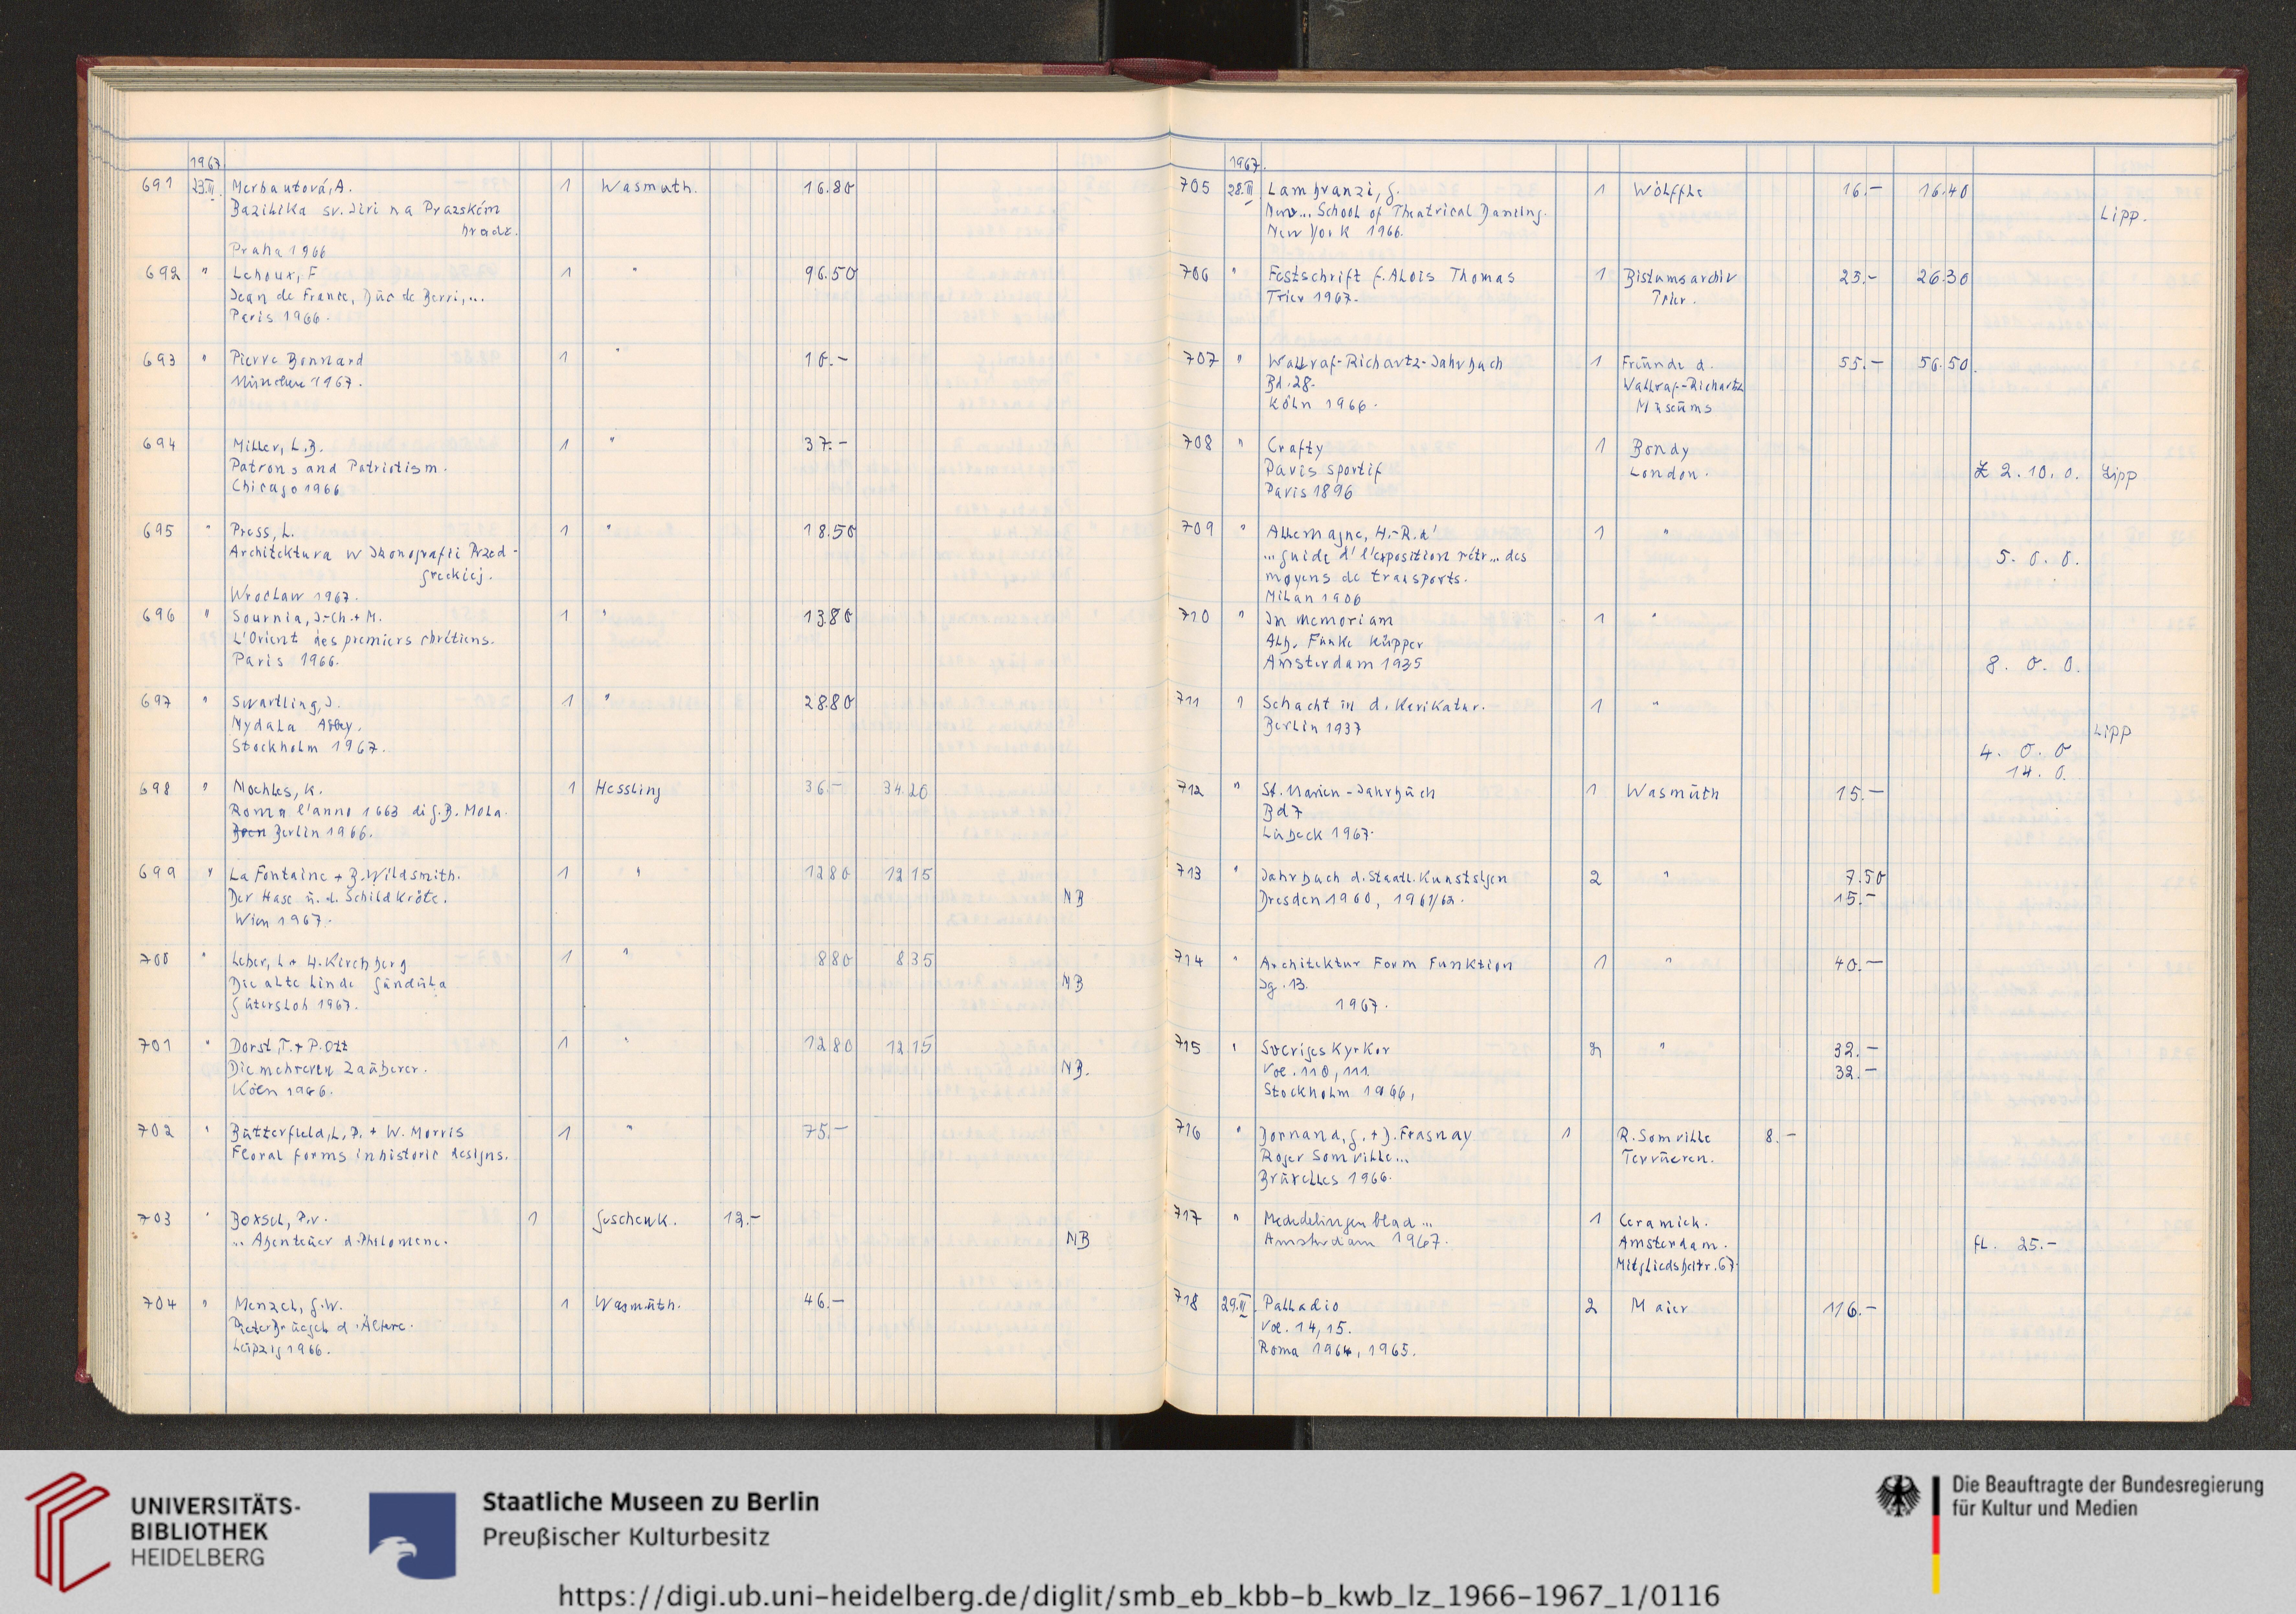 1967.
691 23.III. Merhautová, A. 1 Wasmuth. 16.80
Bazilika sv. Jiri na Prazském
hrade.
Praha 1966
692 " Lehoux, F 1 " 96.50
Jean de France, Duc de Berri,...
Paris 1966.
693 " Pierre Bonnard 1 " 10.-
München 1967.
694 " Miller, L.B. 1 " 37.-
Patrons and Patriotism.
Chicago 1966
695 " Press, L. 1 " 18.50
Architektura w Ikonografii Przed-
greckiej.
Wroclaw 1967.
696 " Sournia, J.-Ch. + M. 1 " 13.80
L'Orient des premiers chrétiens.
Paris 1966.
697 " Swartling, J. 1 " 28.80
Nydala Abbey.
Stockholm 1967.
698 " Noehles, K. 1 Hessling 36.- 34.20
Roma l'anno 1663 di G.B. Mola.
Berlin 1966.
699 " La Fontaine + B. Wildsmith. 1 " 12 80 12 15
Der Hase u. d. Schildkröte. NB
Wien 1967.
700 " Leher, L + H. Kirchberg 1 " 8 80 8 35
Die alte Linde Gundula NB
Gütersloh 1967.
701 " Dorst, T. + P. Ott 1 " 12 80 12 15
Die mehreren Zauberer. NB.
Köln 1966.
702 " Butterfield, L.P. + W. Morris 1 " 75.-
Floral forms in historic designs.
703 " Boxsel, P.v. 1 Geschenk. 12.-
... Abenteuer d. Philomene. NB
704 " Menzel, G.W. 1 Wasmuth. 46.-
Pieter Bruegel d. Ältere.
Leipzig 1966.
1967.
705 28.III Lambranzi, G. 1 Wölffle 16.- 16.40
New... School of Theatrical Dancing. Lipp.
New York 1966.
706 " Festschrift f. Alois Thomas 1 Bistumsarchiv 25.- 26.30
Trier 1967. Trier.
707 " Wallraf-Richartz-Jahrbuch 1 Freunde d. 55.- 56.50
Bd. 28. Wallraf-Richartz
Köln 1966. Museums
708 " Crafty 1 Bondy
Paris sportif London. £ 2.10.0. Lipp
Paris 1896
709 " Allemagne, H.-R. d' 1 "
... guide d'l'exposition rétr... des 5. 0. 0.
moyens de transports.
Milan 1906
710 " In memoriam 1 "
Alb. Funke Küpper
Amsterdam 1935 8. 0. 0.
711 " Schacht in d. Karikatur. 1 "
Berlin 1937 Lipp
4. 0. 0
14. 0.
712 " St. Marien-Jahrbuch 1 Wasmuth 15.-
Bd 7
Lübeck 1967.
713 " Jahrbuch d. Staatl. Kunstslgen 2 " 7.50
Dresden 1960, 1961/62. 15.-
714 " Architektur Form Funktion 1 " 40.-
Jg. 13.
1967.
715 " Sveriges Kyrkor 2 " 32.-
Vol. 110, 111. 32.-
Stockholm 1966,
716 " Dornand, G. + J. Frasnay 1 R. Somville 8.-
Roger Somville... Tervueren.
Bruxelles 1966.
717 " Mededelingenblad ... 1 Ceramiek.
Amsterdam 1967. Amsterdam. fl. 25.-
Mitgliedsbeitr. 67.
718 29.III. Palladio 2 Maier 116.-
Vol. 14, 15.
Roma 1964, 1965.
UNIVERSITÄTS-
BIBLIOTHEK
HEIDELBERG
Staatliche Museen zu Berlin
Preußischer Kulturbesitz
Die Beauftragte der Bundesregierung
für Kultur und Medien
https://digi.ub.uni-heidelberg.de/diglit/smb_eb_kbb-b_kwb_lz_1966-1967_1/0116